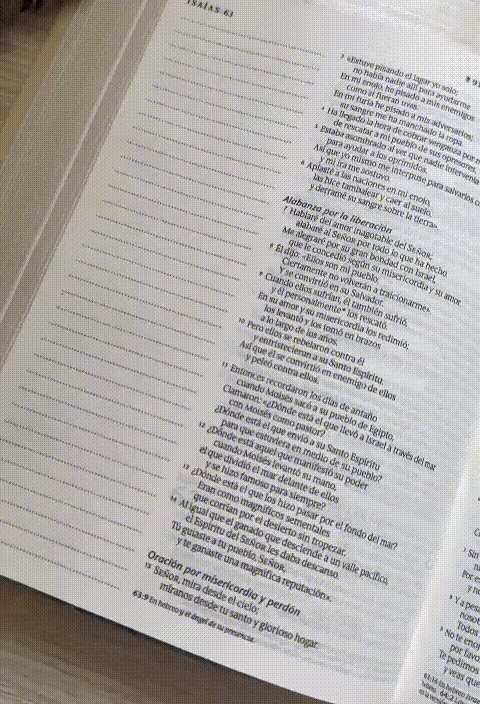 ISAÍAS 63
3 «Estuve pisando el lagar yo solo;
no había nadie allí para ayudarme.
En mi enojo, he pisado a mis enemigos
como si fueran uvas.
En mi furia he pisado a mis adversarios;
su sangre me ha manchado la ropa.
4 Ha llegado la hora de cobrar venganza por mi
de rescatar a mi pueblo de sus opresores.
5 Estaba asombrado al ver que nadie intervenía
para ayudar a los oprimidos.
Así que yo mismo me interpuse para salvarlos
y mi ira me sostuvo.
6 Aplasté a las naciones en mi enojo,
las hice tambalear y caer al suelo,
y derramé su sangre sobre la tierra».
Alabanza por la liberación
7 Hablaré del amor inagotable del SEÑOR;
alabaré al SEÑOR por todo lo que ha hecho.
Me alegraré por su gran bondad con Israel,
que le concedió según su misericordia y su amor.
8 Él dijo: «Ellos son mi pueblo.
Ciertamente no volverán a traicionarme».
Y se convirtió en su Salvador.
9 Cuando ellos sufrían, él también sufrió,
y él personalmente* los rescató.
En su amor y su misericordia los redimió;
los levantó y los tomó en brazos
a lo largo de los años.
10 Pero ellos se rebelaron contra él
y entristecieron a su Santo Espíritu.
Así que él se convirtió en enemigo de ellos
y peleó contra ellos.
11 Entonces recordaron los días de antaño
cuando Moisés sacó a su pueblo de Egipto.
Clamaron: «¿Dónde está el que llevó a Israel a través del mar
con Moisés como pastor?
¿Dónde está el que envió a su Santo Espíritu
para que estuviera en medio de su pueblo?
12 ¿Dónde está aquel que manifestó su poder
cuando Moisés levantó su mano,
el que dividió el mar delante de ellos
y se hizo famoso para siempre?
13 ¿Dónde está el que los hizo pasar por el fondo del mar?
Eran como magníficos sementales
que corrían por el desierto sin tropezar.
14 Al igual que el ganado que desciende a un valle pacífico,
el Espíritu del SEÑOR les daba descanso.
Tú guiaste a tu pueblo, SEÑOR,
y te ganaste una magnífica reputación».
Oración por misericordia y perdón
15 SEÑOR, mira desde el cielo;
míranos desde tu santo y glorioso hogar.
63:9 En hebreo y el ángel de su presencia.